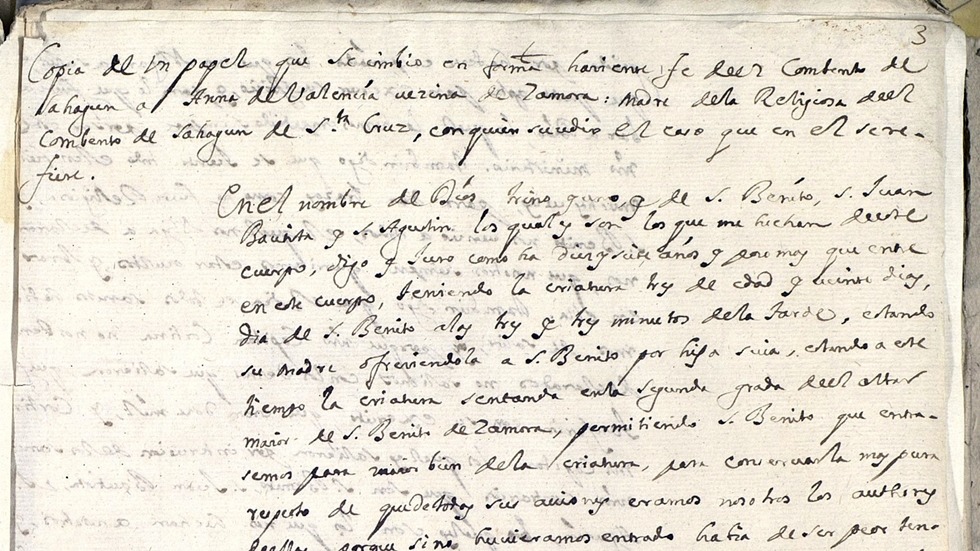 3
Copia de Un papel que se embio en forma haviente fe de el Combento de
Sahagun a Anna de Valencia vezina de Zamora: Madre de la Religiosa de el
Combento de Sahagun de S.ta Cruz, con quien sucedio el caso que en el se re-
fiere.
En el nombre de Dios trino y uno, y de S. Benito, S. Juan
Bautista y S. Agustin los quales son los que me hechan de este
cuerpo, digo y Juro como ha diez y siete años y poco mas que entre
en este cuerpo, teniendo la criatura tres de edad y veinte dias,
dia de S. Benito a las tres y tres minutos de la tarde, estando
su madre ofreciendola a S. Benito por hija suia, estando a este
tiempo la criatura sentanda en la segunda grada de el altar
maior de S. Benito de Zamora, permitiendo S. Benito que entra-
semos para maior bien de la criatura, para conservarla mas pura
respecto de que de todas sus acciones eramos nosotros los authores
de ellas, porque si no huvieramos entrado havia de ser peor